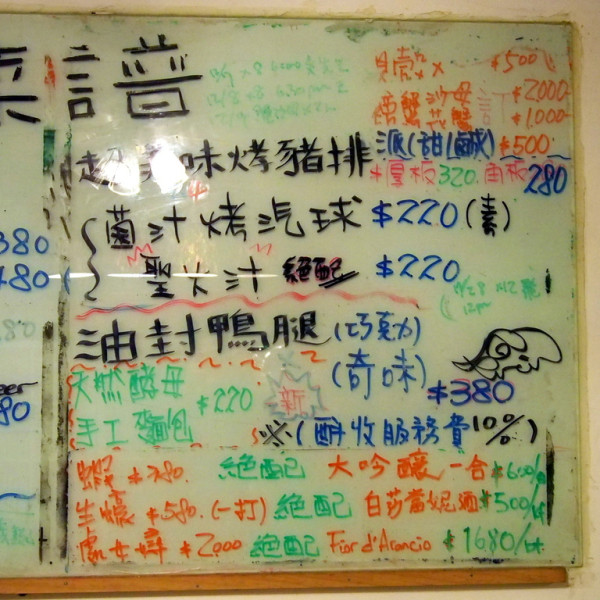 菜譜
貝殼 x $500
螃蟹 沙母 $2000
花蟹 $1000
派(甜|鹹) $500
超美味烤豬排 *厚板320. 角板280
380
菌汁烤汽球 $220(素)
480
聖火汁 絕配 $220
油封鴨腿 (巧克力)
(奇味) $380
天然酵母
手工麵包 $220
新
80
※(酌收服務費10%)
蝦 $780. 絕配 大吟釀一合 $600/
生蠔 $580. (一打) 絕配 白莎當妮酒 $500/
處女蟳 $2000 絕配 Fior d'Arancio $1680/